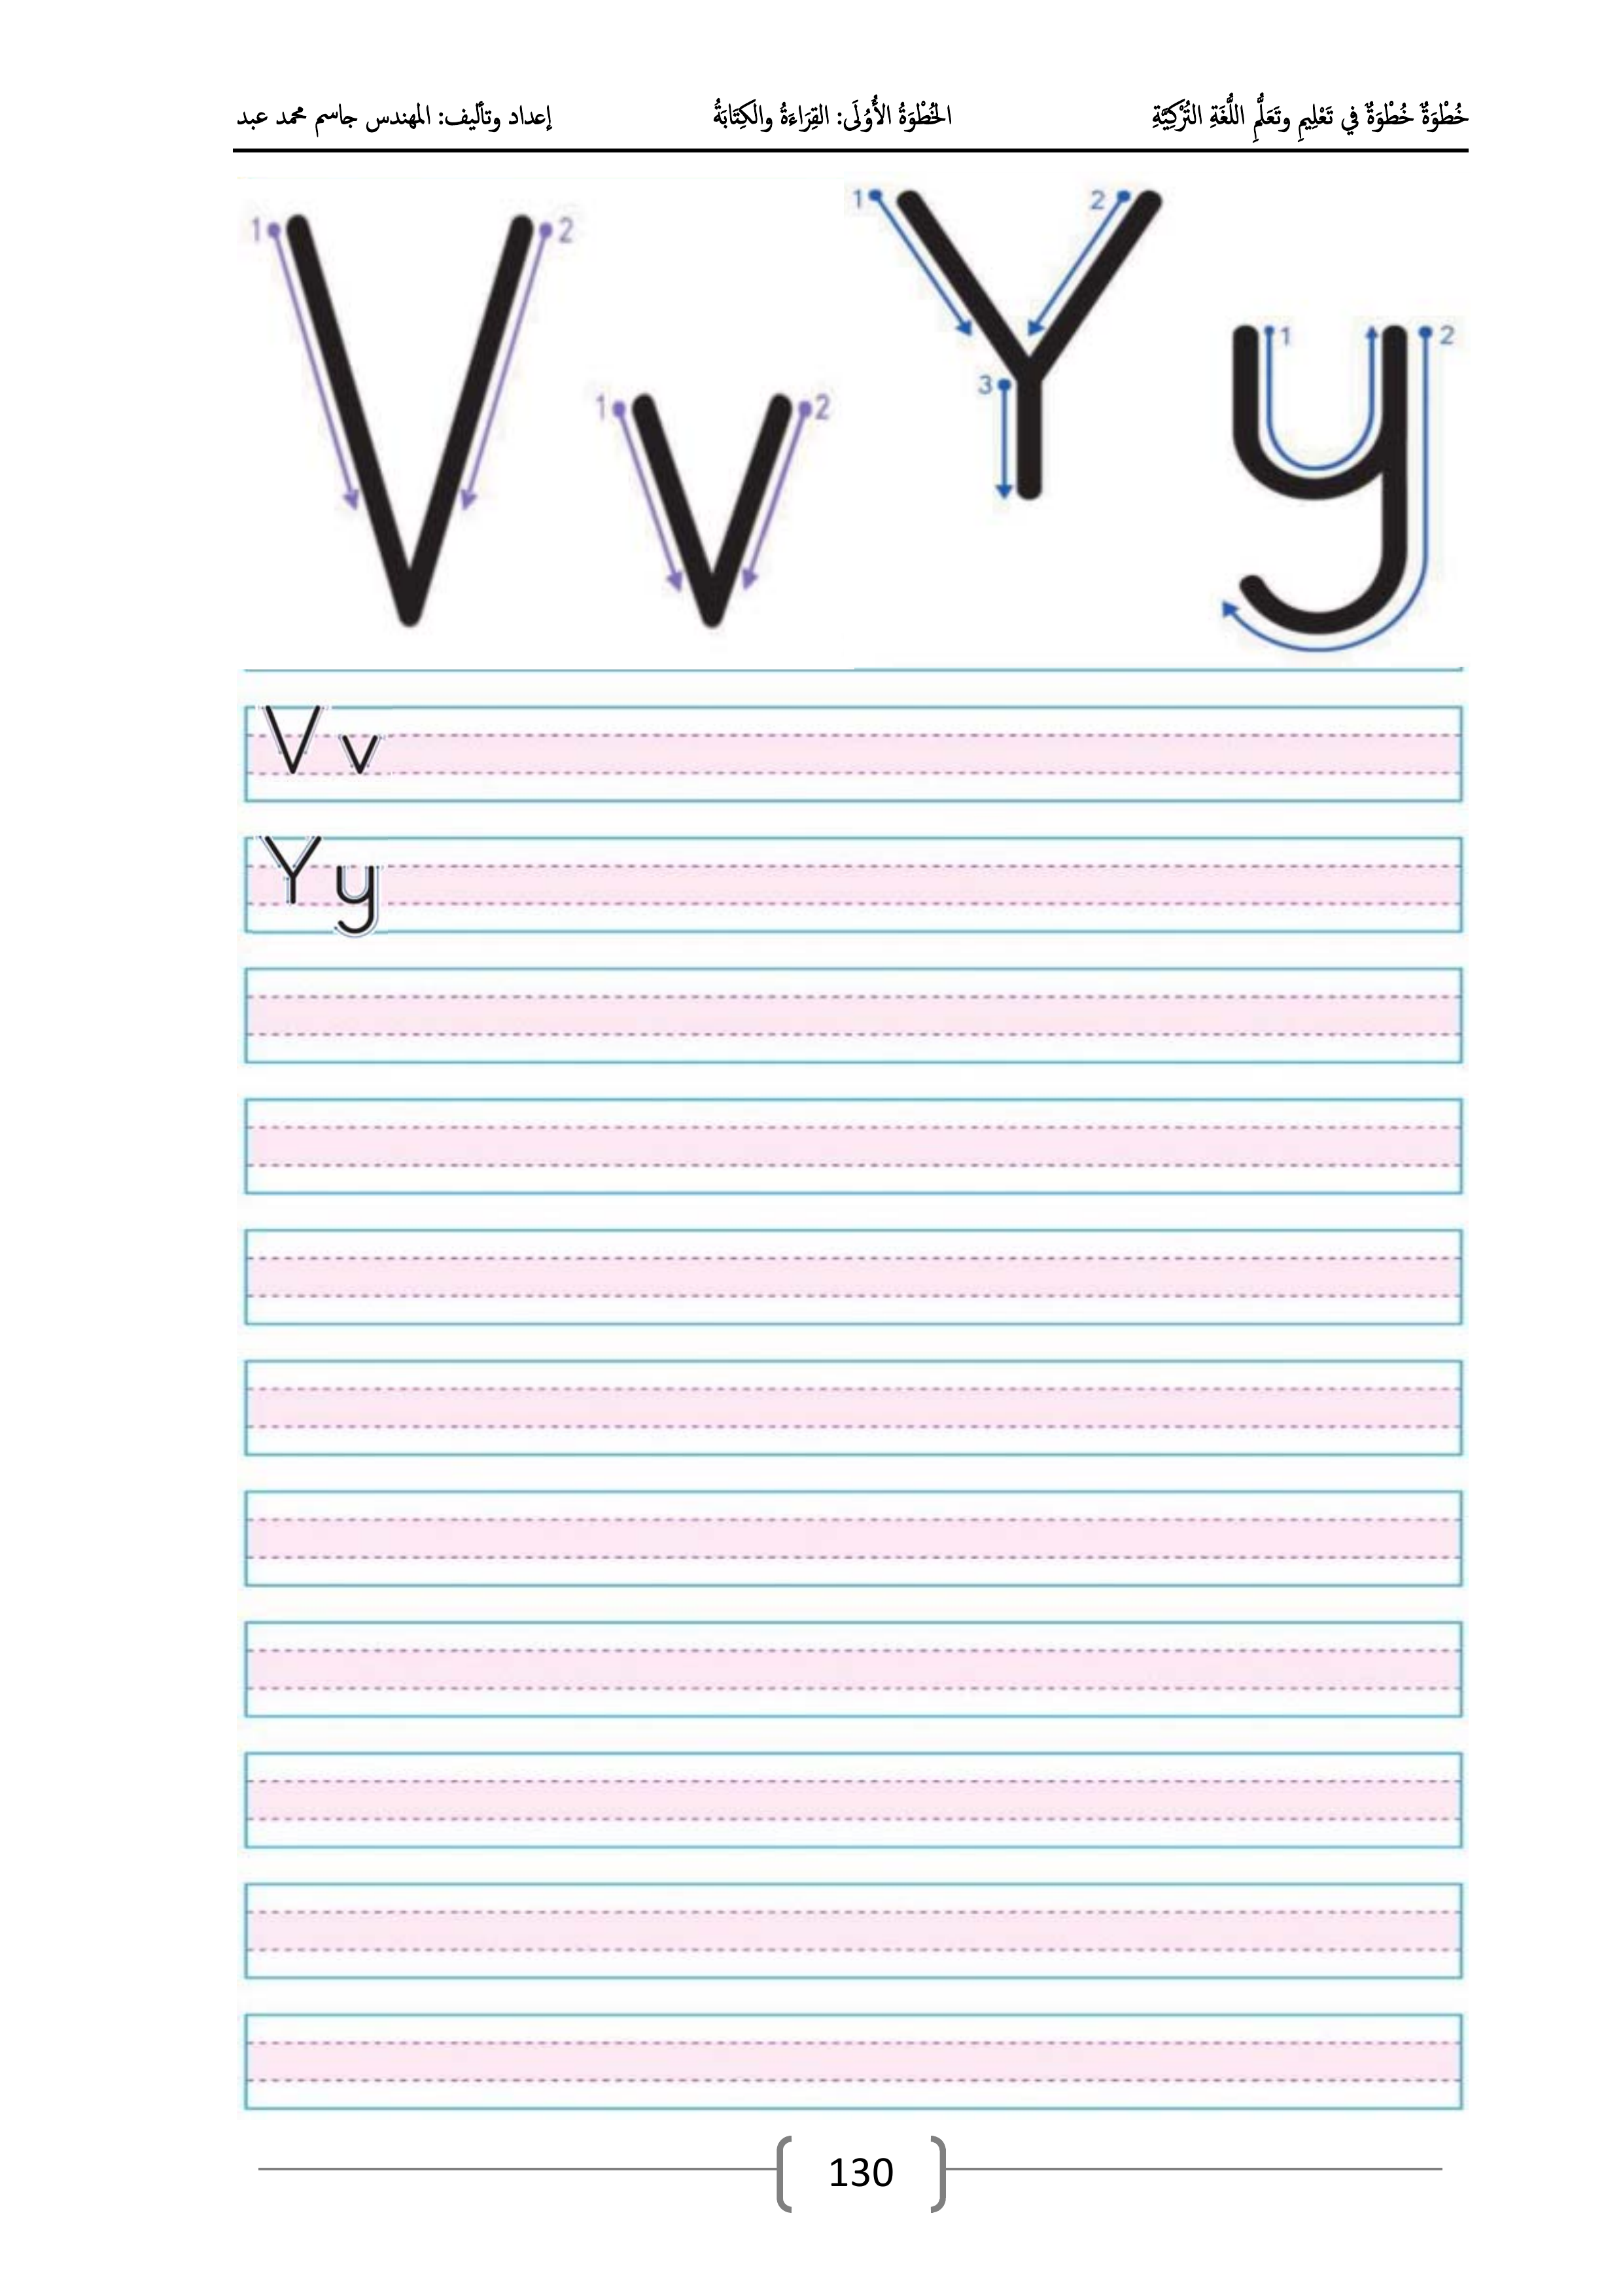 خُطْوَةٌ خُطْوَةٌ في تَعْلِيمِ وتَعَلُّمِ اللُّغَةِ التُرْكِيَّةِ الخُطْوَةُ الأُوُلَى: القِرَاءَةُ والكِتَابَةُ إعداد وتأليف: المهندس جاسم محمد عبد
1 V 2 1 v 2 1 Y 2 3 1 y 2
V v
Y y
130